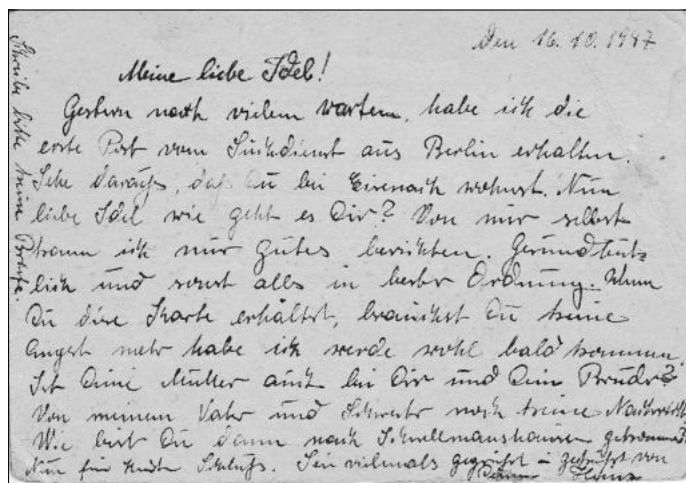 Den 16.10.1947
Meine liebe Idel!
Gestern nach vielem warten, habe ich die
erste Post vom Suchdienst aus Berlin erhalten.
Sehe daraus, daß Du bei Eisenach wohnst. Nun
liebe Idel wie geht es Dir? Von mir selbst
kann ich nur gutes berichten. Gesundheit-
lich und sonst alles in bester Ordnung. Wenn
Du diese Karte erhältst, brauchst Du keine
Angst mehr habe ich werde wohl bald kommen.
Ist Deine Mutter auch bei Dir und Dein Bruder?
Von meinem Vater und Schwester noch keine Nachricht
Wie bist Du denn nach Schnellmannshausen gekommen?
Nun für heute Schluß. Sei vielmals gegrüßt u geküßt von
Heinz
Schreibe bitte keine